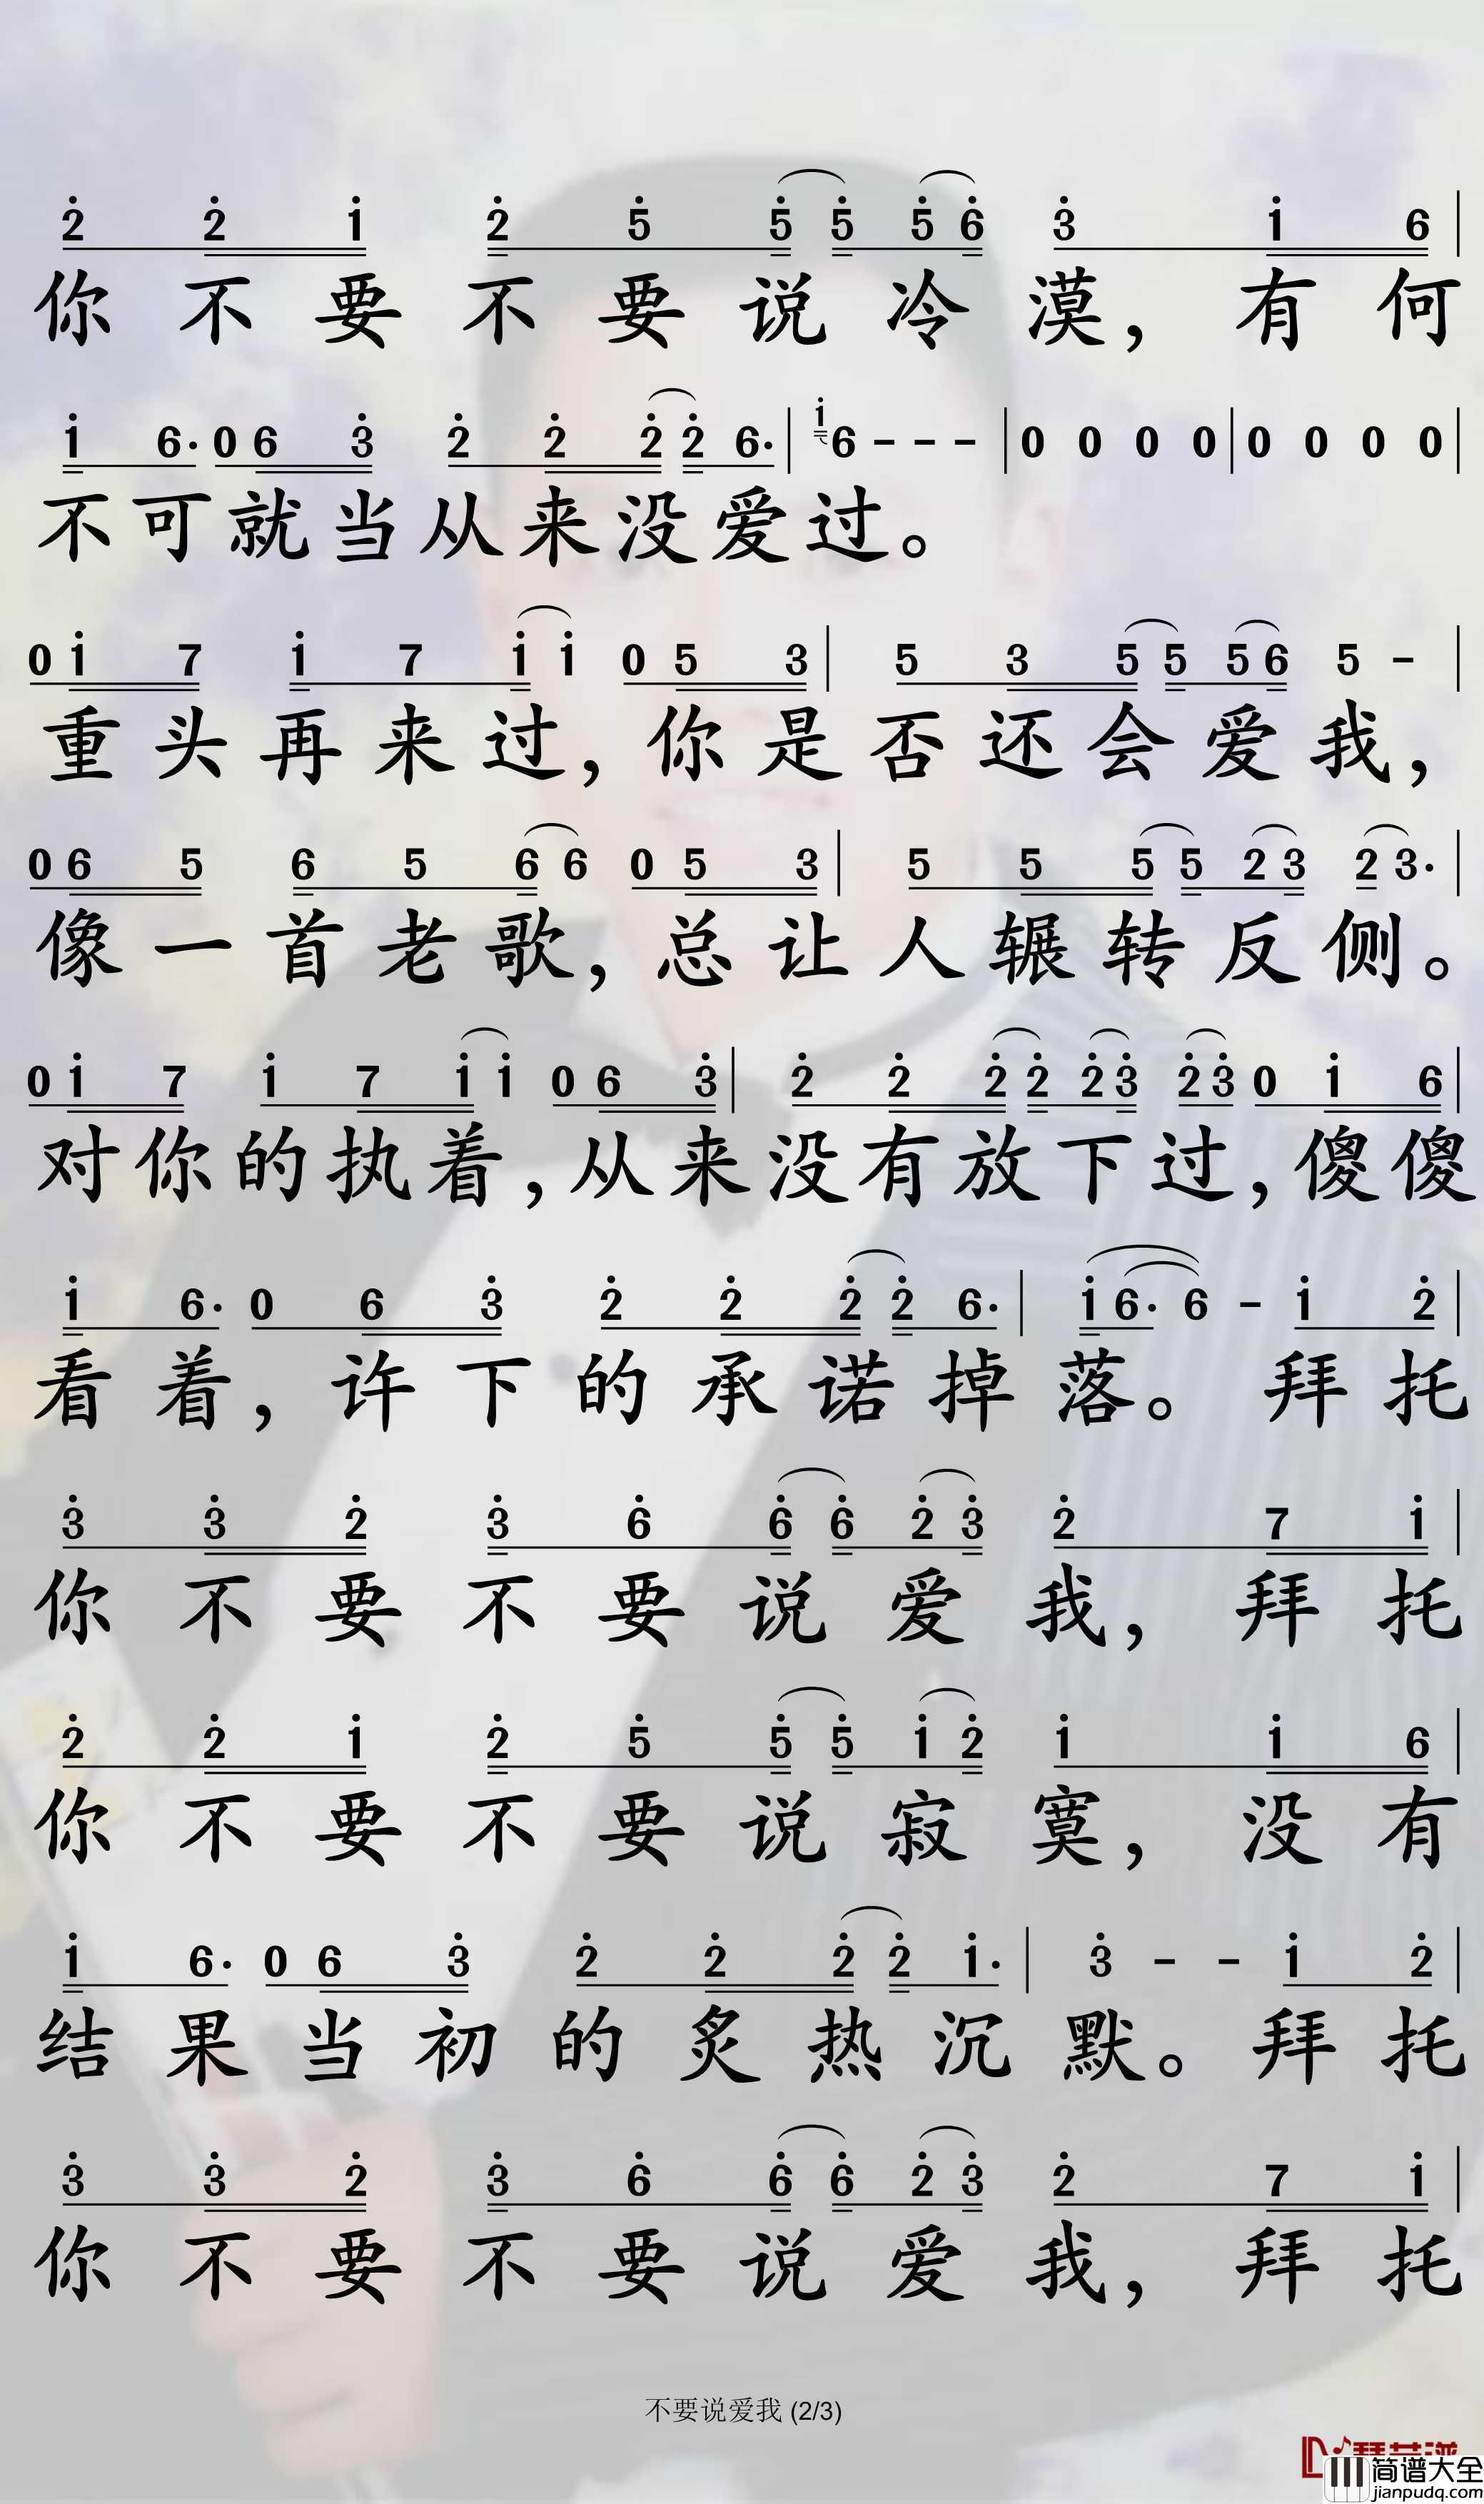 2̇ 2̇ 1̇ 2̇ 5̇ 5̇ 5̇ 5̇ 6̇ 3̇ 1̇ 6 |
你不要不要说冷漠，有何
1̇ 6· 0 6 3̇ 2̇ 2̇ 2̇ 2̇ 6· | 1̇ 6 - - - | 0 0 0 0 | 0 0 0 0 |
不可就当从来没爱过。
0 1̇ 7 1̇ 7 1̇ 1̇ 0 5 3 | 5 3 5 5 5 6 5 - |
重头再来过，你是否还会爱我，
0 6 5 6 5 6 6 0 5 3 | 5 5 5 5 2 3 2 3· |
像一首老歌，总让人辗转反侧。
0 1̇ 7 1̇ 7 1̇ 1̇ 0 6 3̇ | 2̇ 2̇ 2̇ 2̇ 2̇ 3̇ 2̇ 3̇ 0 1̇ 6 |
对你的执着，从来没有放下过，傻傻
1̇ 6· 0 6 3̇ 2̇ 2̇ 2̇ 2̇ 6· | 1̇ 6· 6 - 1̇ 2̇ |
看着，许下的承诺掉落。拜托
3̇ 3̇ 2̇ 3̇ 6̇ 6̇ 6̇ 2̇ 3̇ 2̇ 7 1̇ |
你不要不要说爱我，拜托
2̇ 2̇ 1̇ 2̇ 5̇ 5̇ 5̇ 1̇ 2̇ 1̇ 1̇ 6 |
你不要不要说寂寞，没有
1̇ 6· 0 6 3̇ 2̇ 2̇ 2̇ 2̇ 1̇· | 3̇ - - 1̇ 2̇ |
结果当初的炙热沉默。拜托
3̇ 3̇ 2̇ 3̇ 6̇ 6̇ 6̇ 2̇ 3̇ 2̇ 7 1̇ |
你不要不要说爱我，拜托
不要说爱我 (2/3)
简谱大全
jianpudq.com